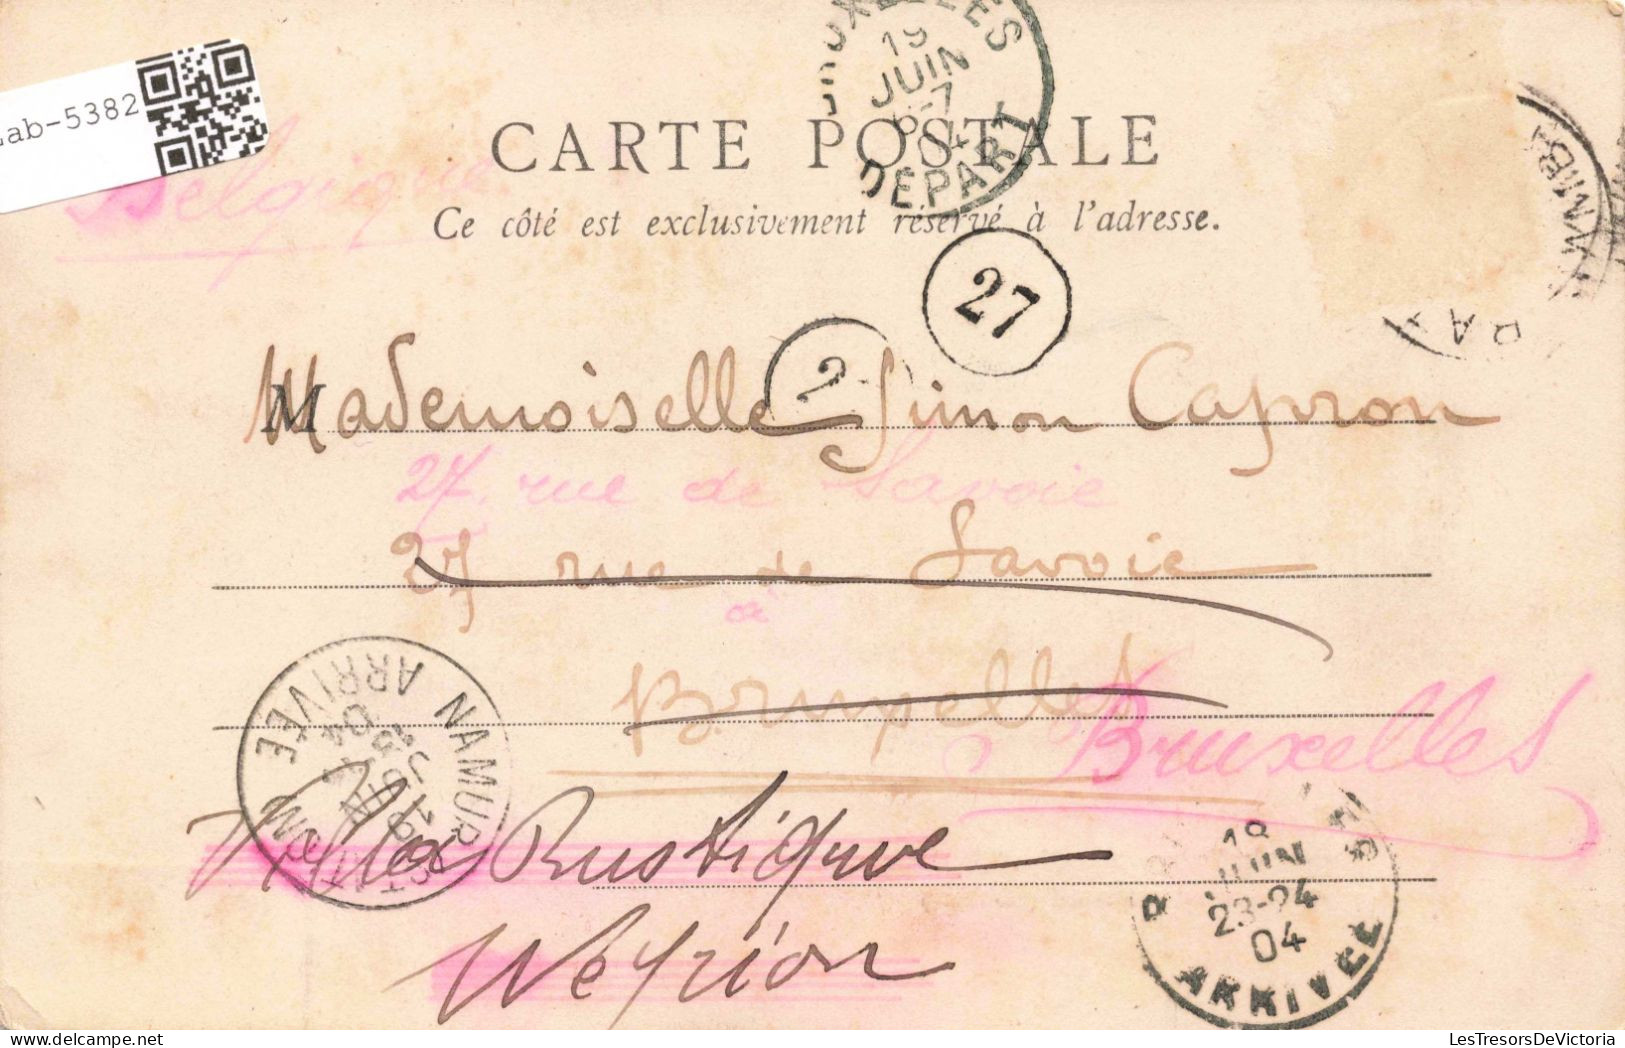 BRUXELLES
19
JUIN
6-7
04
DÉPART
ab-5382
CARTE POSTALE
Belgique
Ce côté est exclusivement réservé à l'adresse.
27
2
DAX
Mademoiselle Simon Capron
27, rue de Savoie
27 rue de Savoie
à
Bruxelles
Bruxelles
NAMUR STATION
19 JUIN
04
ARRIVÉE
Villa Rustique
18
JUIN
23-24
04
ARRIVÉE
Wépion
LesTresorsDeVictoria